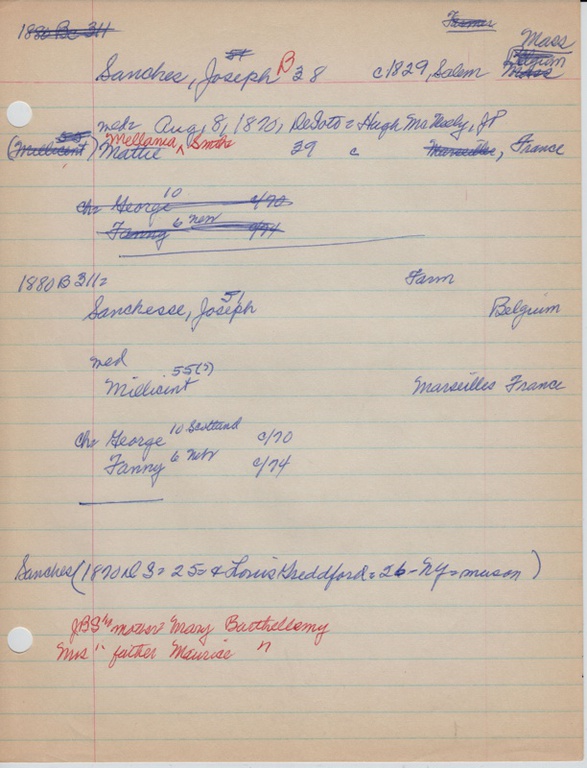 1880 Bc 311 Farmer
Mass
51 Belgium
Sanches, Joseph B 38 c1829, Salem Mass
med= Aug, 8, 1870, DeSoto = Hugh McNeely, JP
55 Mellania Smoke
(Millicent) Mattie ^ 39 c Marseilles, France
10
ch= George c/70
6 Nebr
Fanny c/74
1880 B 311= Farm
51
Sanchesse, Joseph Belgium
med 55(?)
Millicint Marseilles France
10 Scotland
ch= George c/70
6 Nebr
Fanny c/74
Sanches (1870 D S = 25 = & Louis = 26 - NY = mason)
JBS's mother = Mary Barthellemy
Mrs " father Maurice "